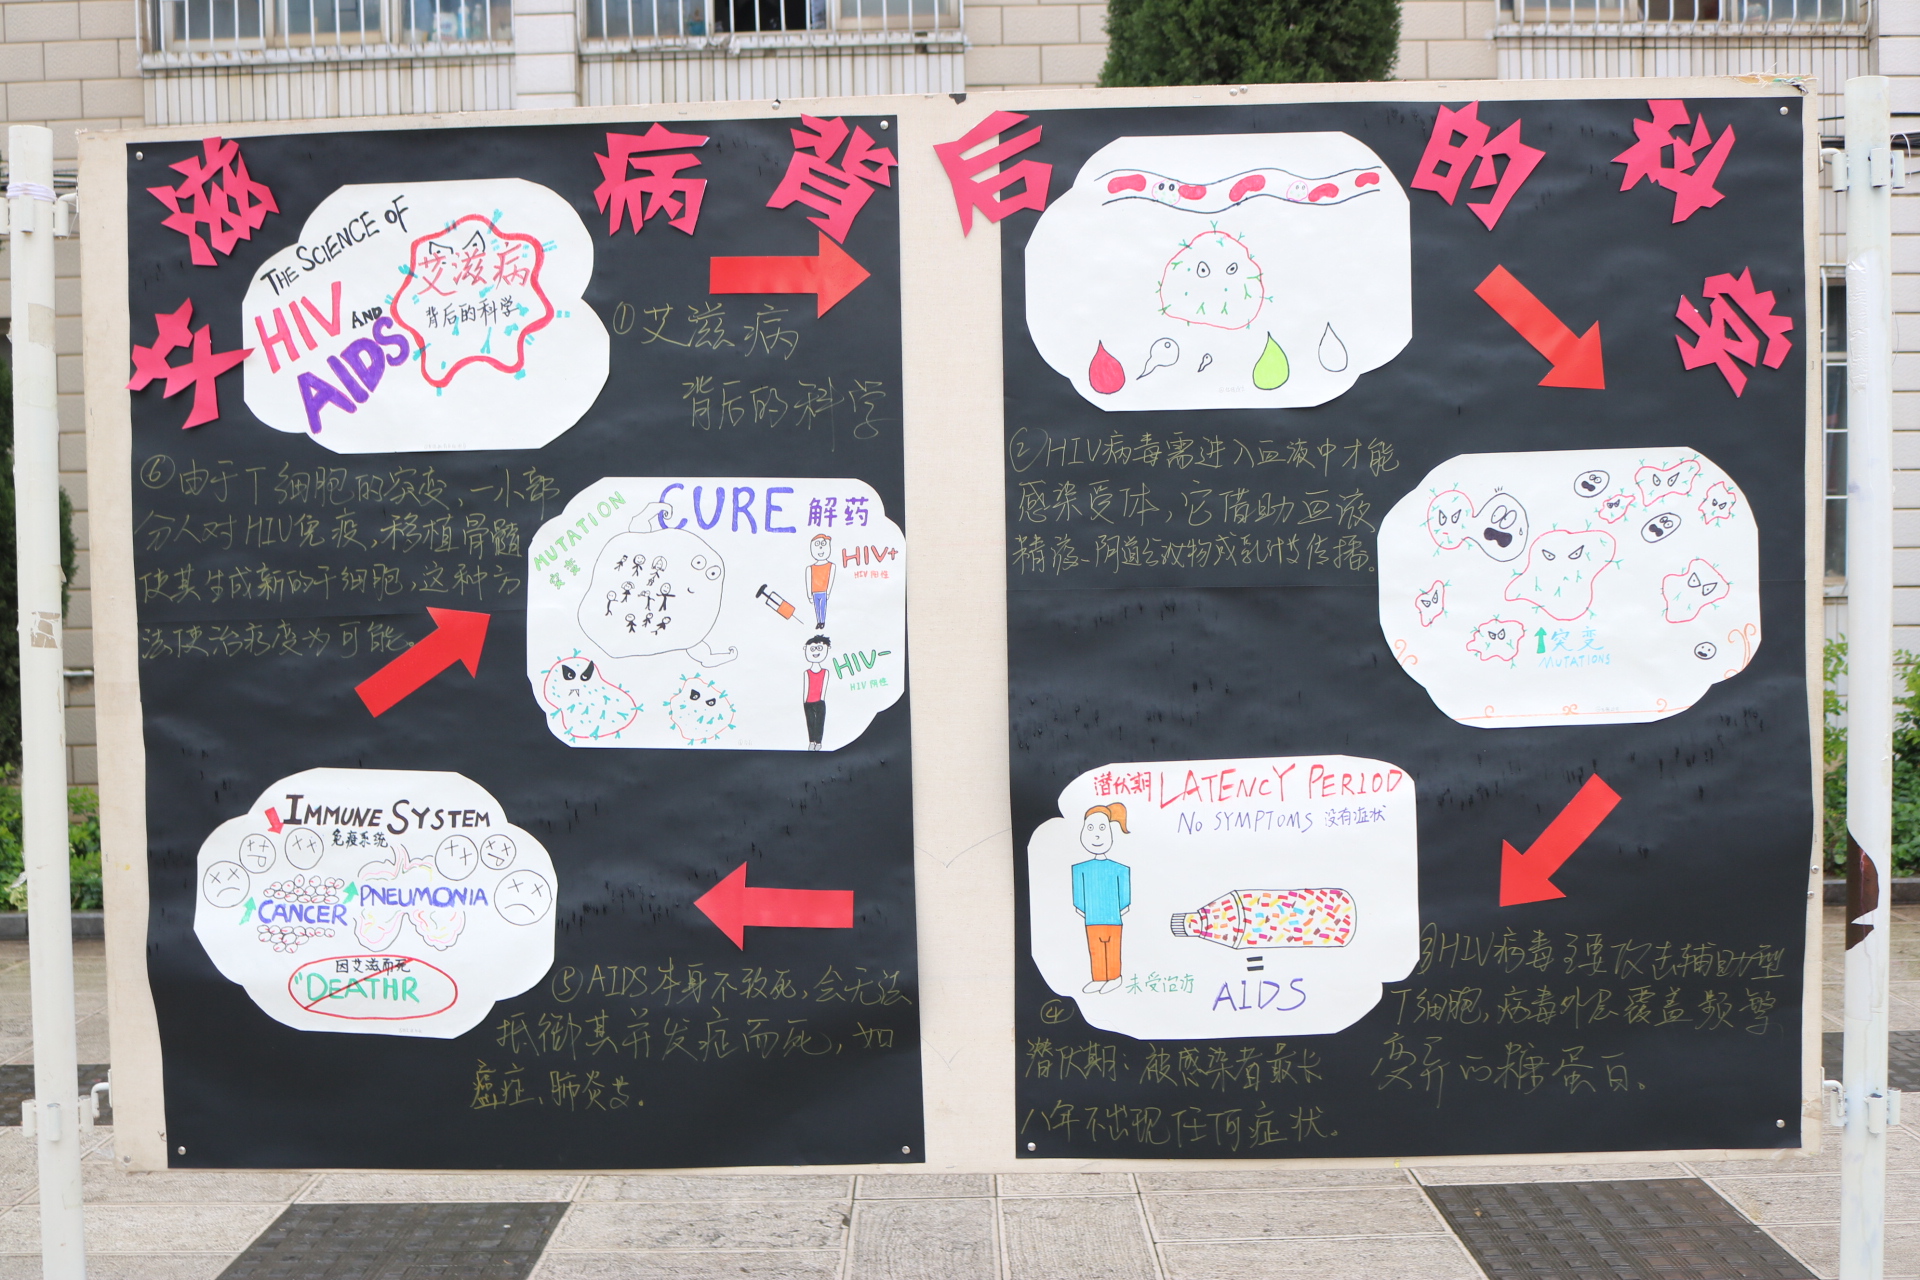 艾滋病背后的科学
THE SCIENCE OF
HIV AND
AIDS
艾滋病
背后的科学
①艾滋病
背后的科学
②HIV病毒需进入血液中才能
感染受体，它借助血液、
精液、阴道分泌物或乳汁传播。
突变
MUTATIONS
③HIV病毒主要攻击辅助型
T细胞，病毒外层覆盖频繁
变异的糖蛋白。
潜伏期 LATENCY PERIOD
NO SYMPTOMS 没有症状
=
AIDS
④
潜伏期：被感染者最长
八年不出现任何症状。
IMMUNE SYSTEM
免疫系统
CANCER
PNEUMONIA
因艾滋而死
"DEATHR
⑤AIDS本身不致死，会无法
抵御其并发症而死，如
癌症、肺炎等.
CURE 解药
MUTATION
突变
HIV+
HIV 阳性
HIV-
HIV 阴性
⑥由于T细胞的突变，一小部
分人对HIV免疫，移植骨髓
使其生成新的干细胞，这种方
法使治疗变为可能。